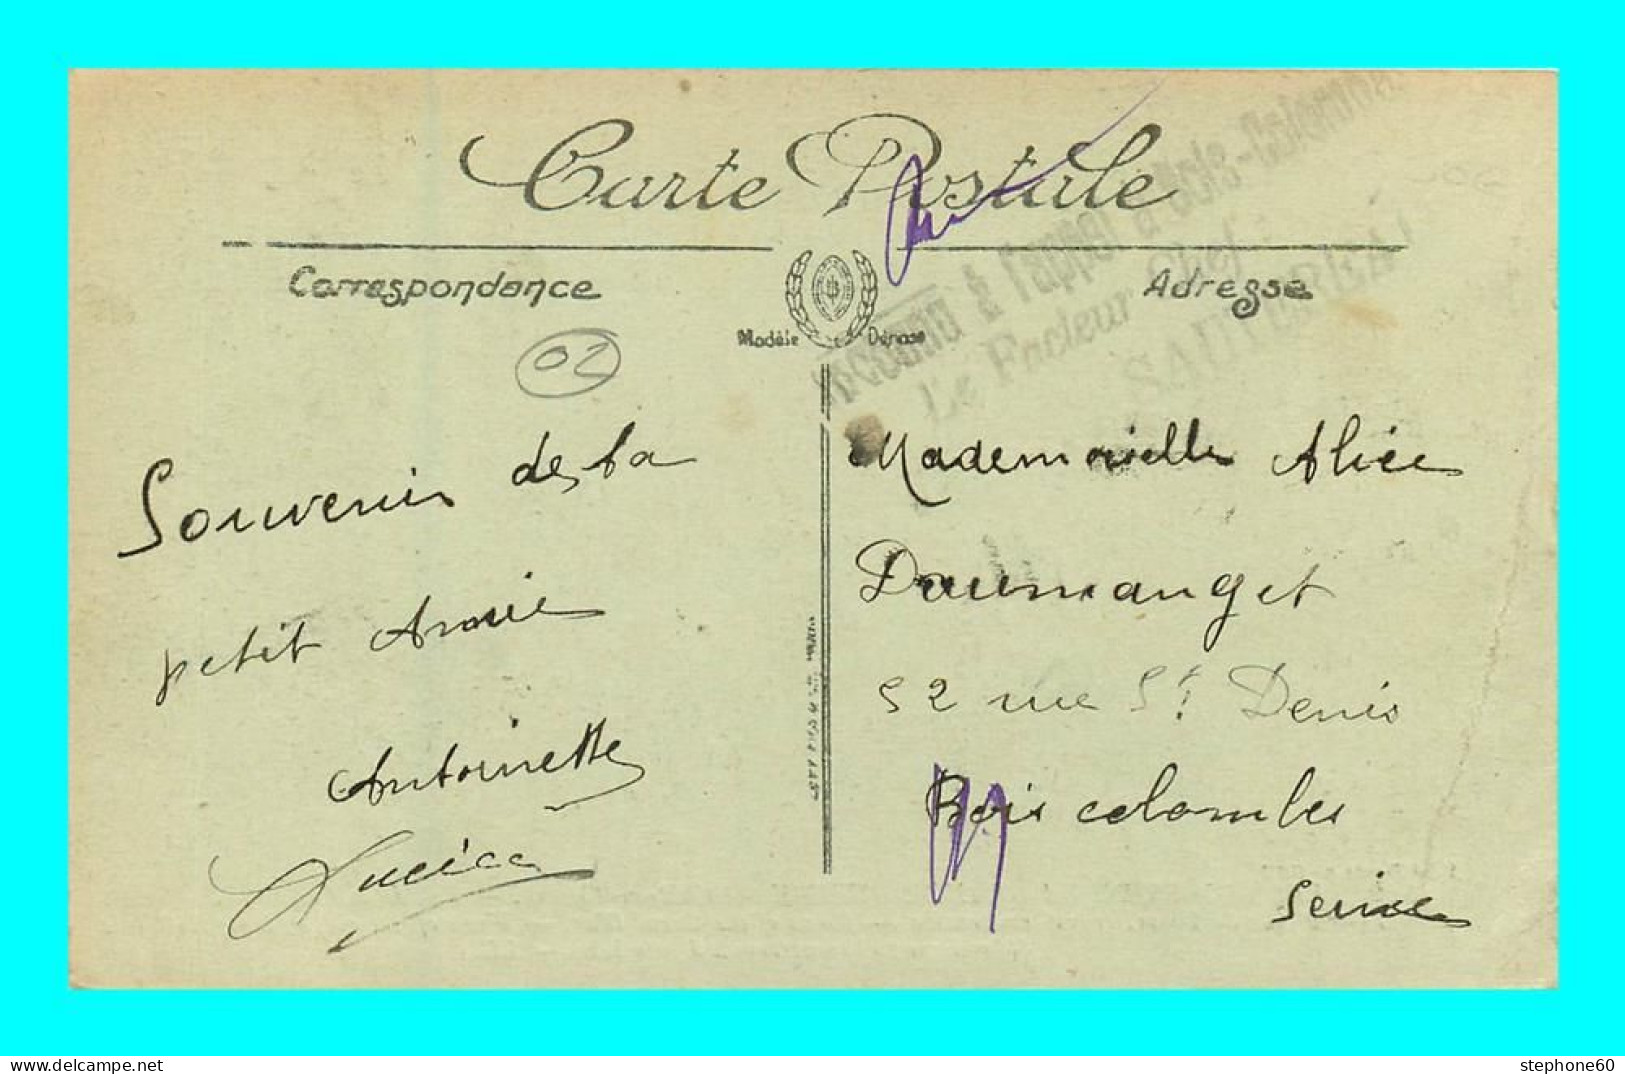 Carte Postale
Correspondance
Adresse
Modèle Déposé
02
Inconnu à l'appel à Bois-Colombes
Le Facteur Chef
Souvenir de ta
petit Amie
Antoinette
Mademoiselle Alice
Daumanget
52 rue St Denis
Bois colombes
Seine
delcampe.net
stephone60